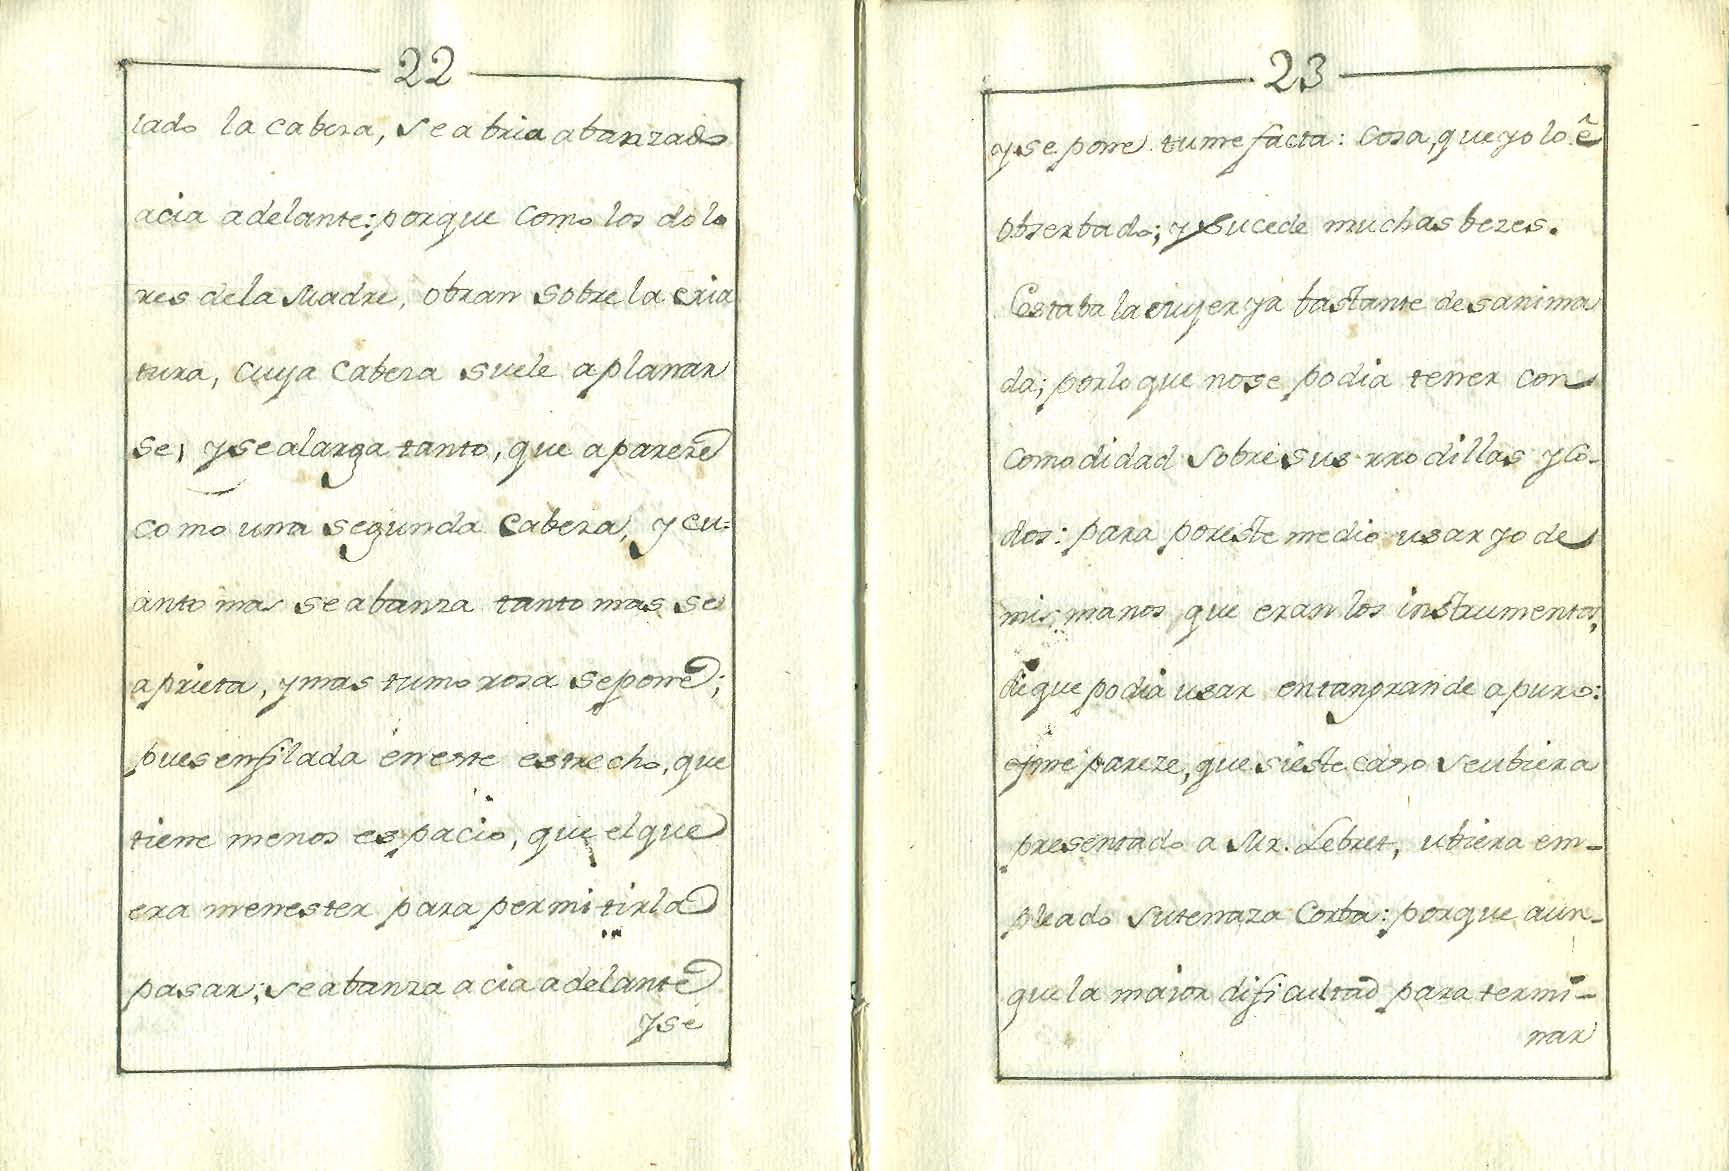 22
lado la cabeza, se abria abanzado
acia adelante: porque como los dolo
res de la Madre, obran sobre la cria
tura, cuya cabeza suele aplanar
se, y se alarga tanto, que apareze
como una segunda cabeza, y cu=
anto mas se abanza tanto mas se
aprieta, y mas tumorosa se pone;
pues enfilada en este estrecho, que
tiene menos espacio, que el que
era menester para permitirla
pasar; se abanza acia adelante
y se
23
y se pone tumefacta: cosa, que yo lo ê
obserbado; y sucede muchas bezes.
Estaba la muger ya bastante desanima
da; por lo que no se podia tener con
comodidad sobre sus rrodillas y co-
dos: para por este medio usar yo de
mis manos que eran los instrumentos,
de que podia usar en tan grande apuro:
y me pareze, que si este caso se ubiera
presentado a Mr. Lebret, ubiera em-
pleado su tenaza corba: porque aun-
que la maior dificultad para termi-
nar